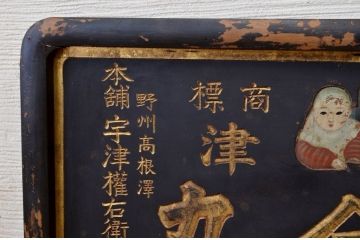 商標
津
野州高根澤
本舗 宇津權右衛